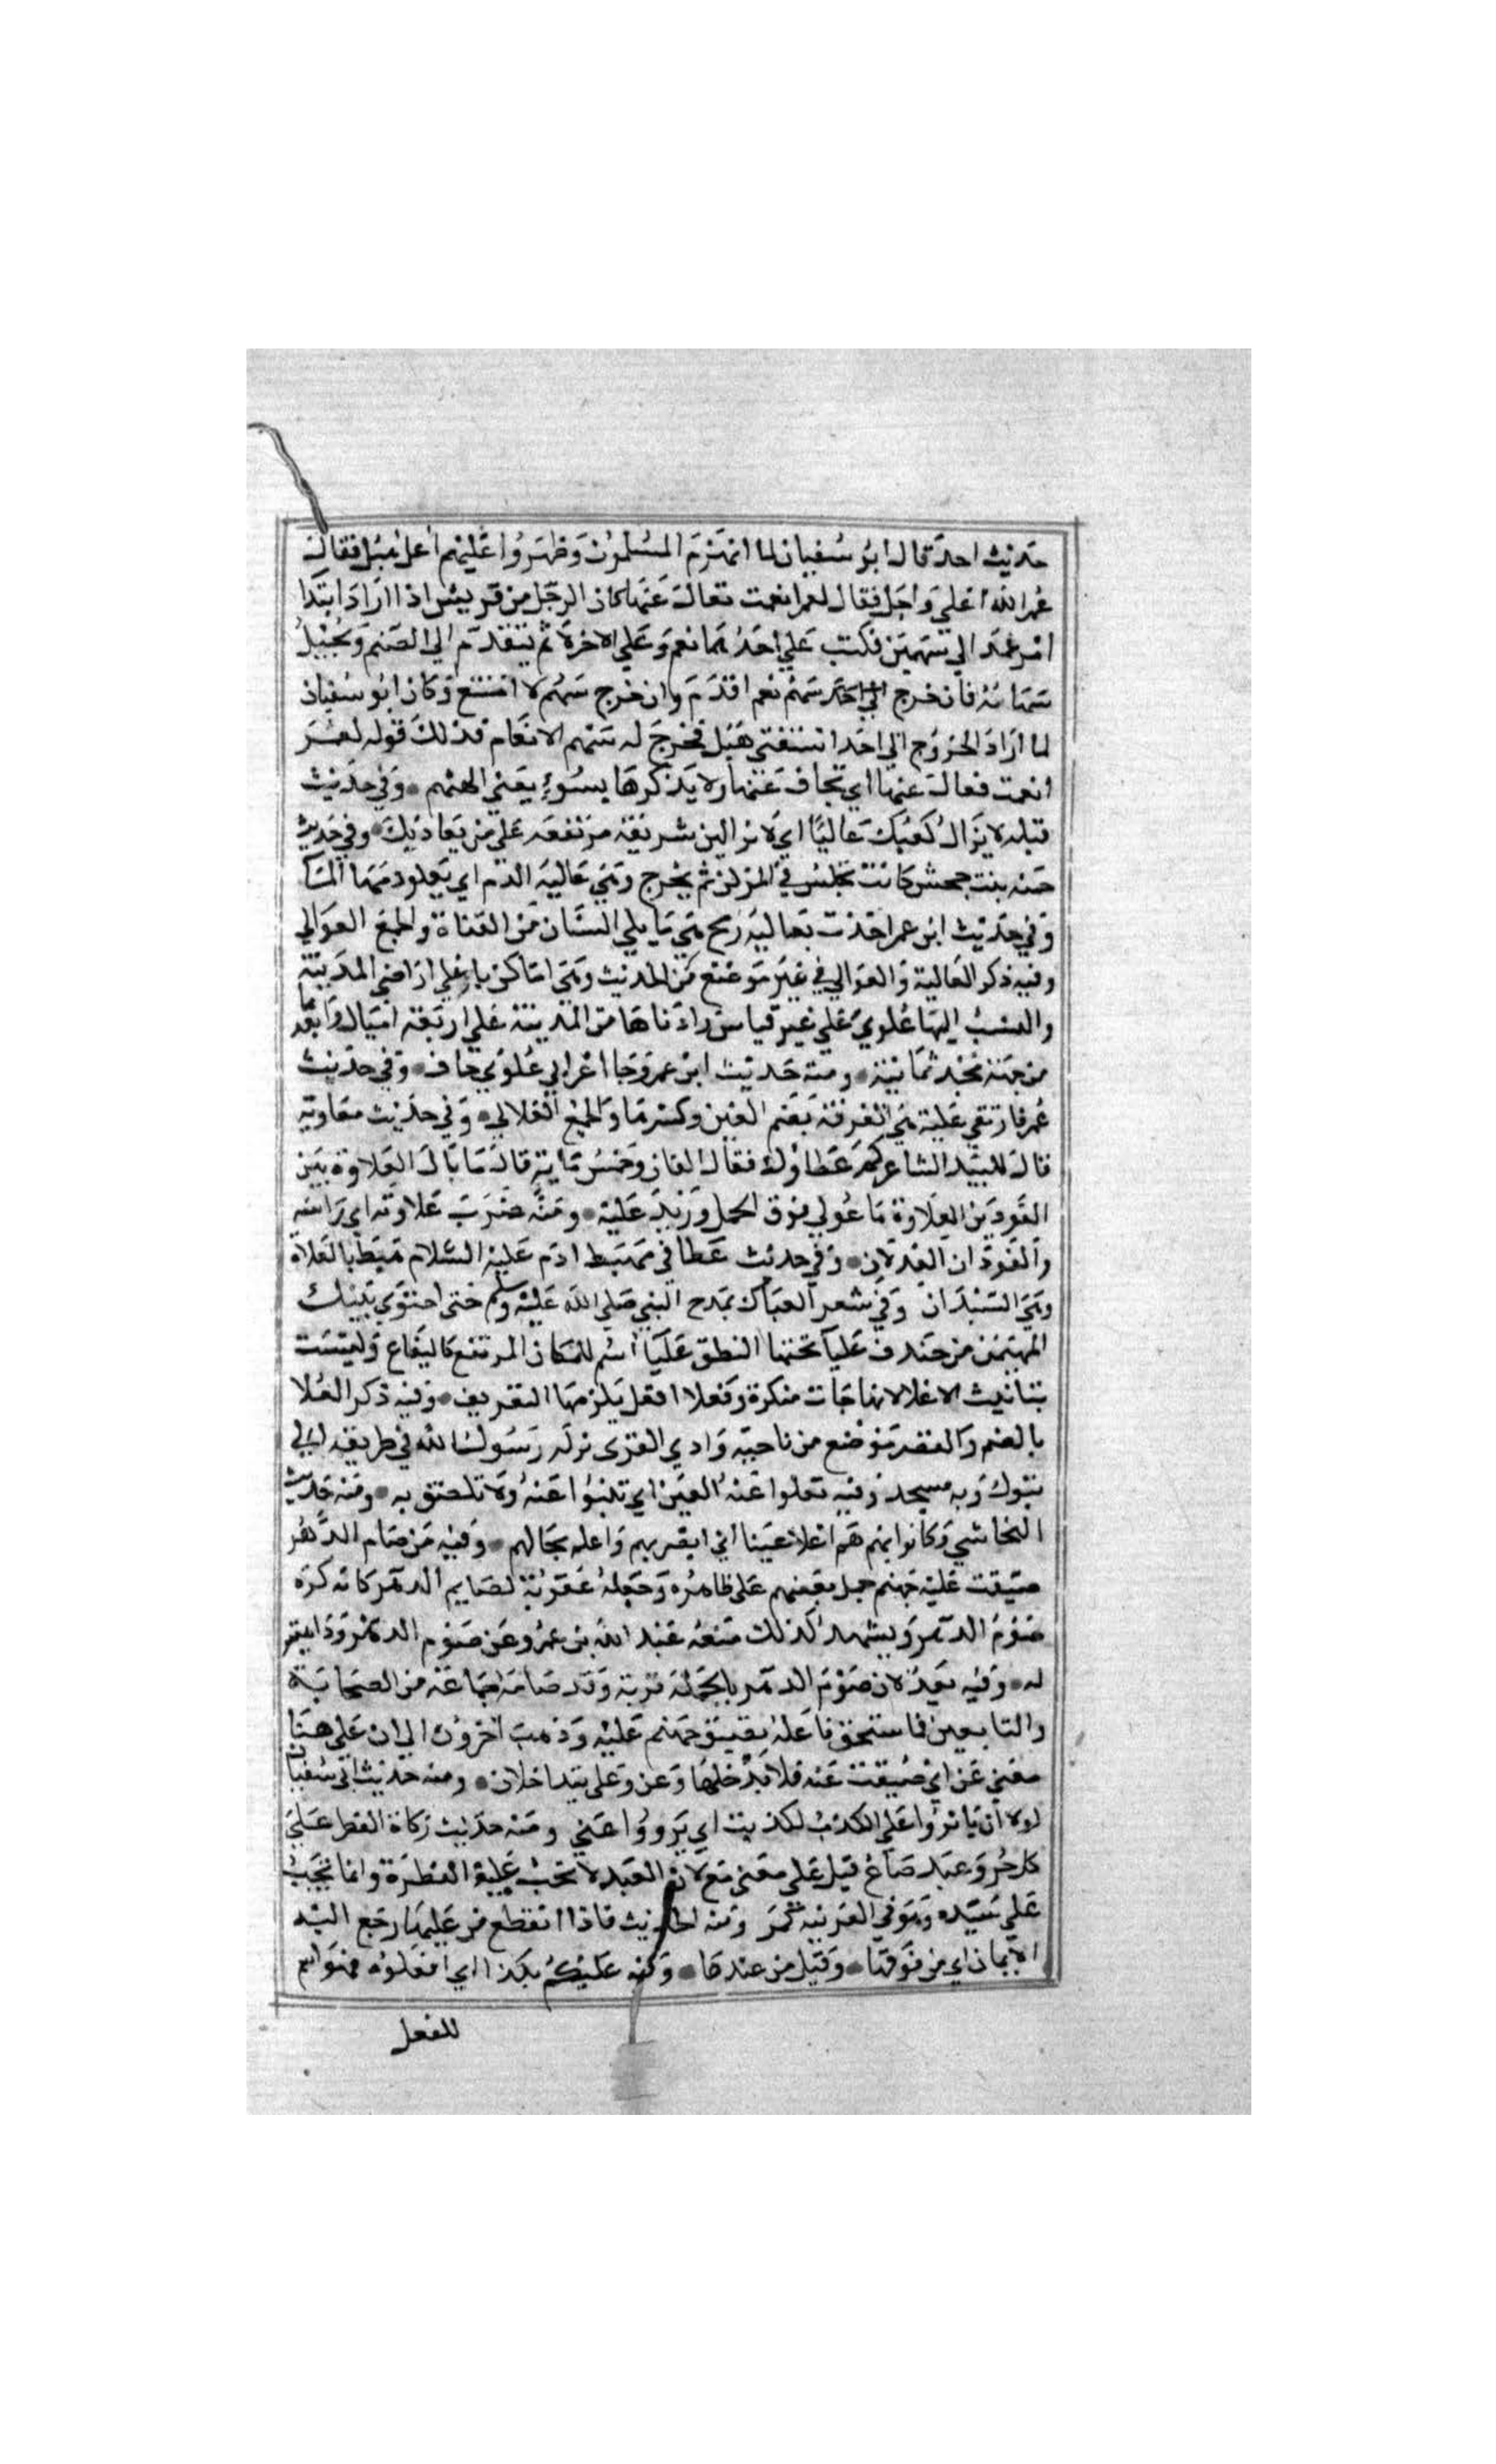 حديث احد قال ابو سفيان لما انهزم المسلمون وظهروا عليهم اعل هبل فقال
عمر الله اعلى واجل فقال لعمر انعمت فعال عنها كان الرجل من قريش اذا اراد ابتدا
امر عمد الي سهمين فكتب علي احدهما نعم وعلي الاخر لا ثم يتقدم الي الصنم ويجيل
سهامه فان خرج سهم نعم اقدم وان خرج سهم لا امتنع وكان ابو سفيان
لما اراد الخروج الي احد استفتي هبل فخرج له سهم الانعام فذلك قوله لعمر
انعمت فعال عنها اي تجاف عنها ولا يذكرها بسوء يعني الهتهم وفي حديث
قيله لا يزال كعبك عاليا اي لا تزالين شريفة مرتفعة علي من يعاديك وفي حديث
حمنه بنت جحش كانت تجلس في المركن ثم يخرج وهي عالية الدم اي يعلو دمها الما
وفي حديث ابن عمر اخذت بعالية رمح هي ما يلي السنان من القناة والجمع العوالي
وفيه ذكر العالية والعوالي في غير موضع من الحديث وهي اماكن باعلي اراضي المدينة
والنسب اليها علوي علي غير قياس وادناها من المدينة علي اربعة اميال وابعدها
من جهة نجد ثمانية ومنه حديث ابن عمر وجا اعرابي علوي جاف وفي حديث
عمر فارتقي علية هي الغرفة بضم العين وكسرها والجمع العلالي وفي حديث معاوية
قال للبيد الشاعر كم عطاؤك فقال الفان وخمس ماية قال ما بال العلاوة بين
الفودين العلاوة ما عولي فوق الحمل وزيد عليه ومنه ضرب علاوته اي راسه
والفودان العدلان وفي حديث عطا في مهبط ادم عليه السلام هبط بالعلاة
وهي السندان وفي شعر العباس يمدح النبي صلي الله عليه وسلم حتى احتوي بيتك
المهيمن من خندف عليا تحتها النطق عليا اسم للمكان المرتفع كاليفاع وليست
بتانيث الاعلا لانها جات منكرة وفعلا افعل يلزمها التعريف وفيه ذكر العلا
بالضم والقصر موضع من ناحية وادي القرى نزله رسول الله في طريقه الي
تبوك وبه مسجد وفيه تعلوا عنه العين اي تنبوا عنه ولا تلصق به ومنه حديث
النجاشي وكانوا بهم هم اعلا عينا اي ابصر بهم واعلم بحالهم وفيه من صام الدهر
ضيقت عليه جهنم حمل بعضهم علي ظاهره وجعله عقوبة لصايم الدهر كانه كره
صوم الدهر ويشهد لذلك منعه عبد الله بن عمرو عن صوم الدهر وكراهيته
له وفيه بعد لان صوم الدهر بالجملة قربة وقد صامه جماعة من الصحابة
والتابعين فما يستحق فاعله تضييق جهنم عليه وذهب اخرون الي ان علي هنا
معني عن اي ضيقت عنه فلا يدخلها وعن وعلي يتداخلان ومنه حديث ابي سفيان
لولا ان ياثروا علي الكذب لكذبت اي يرووا عني ومنه حديث زكاة الفطر علي
كل حر وعبد صاع قيل علي معني مع لان العبد لا تجب عليه الفطرة وانما تجب
علي سيده وهو في العربية ومنه الحديث فاذا انقطع من عليها رجع اليه
الايمان اي من فوقها وقيل من عندها وفيه عليكم بكذا اي افعلوه فهو اسم
للفعل